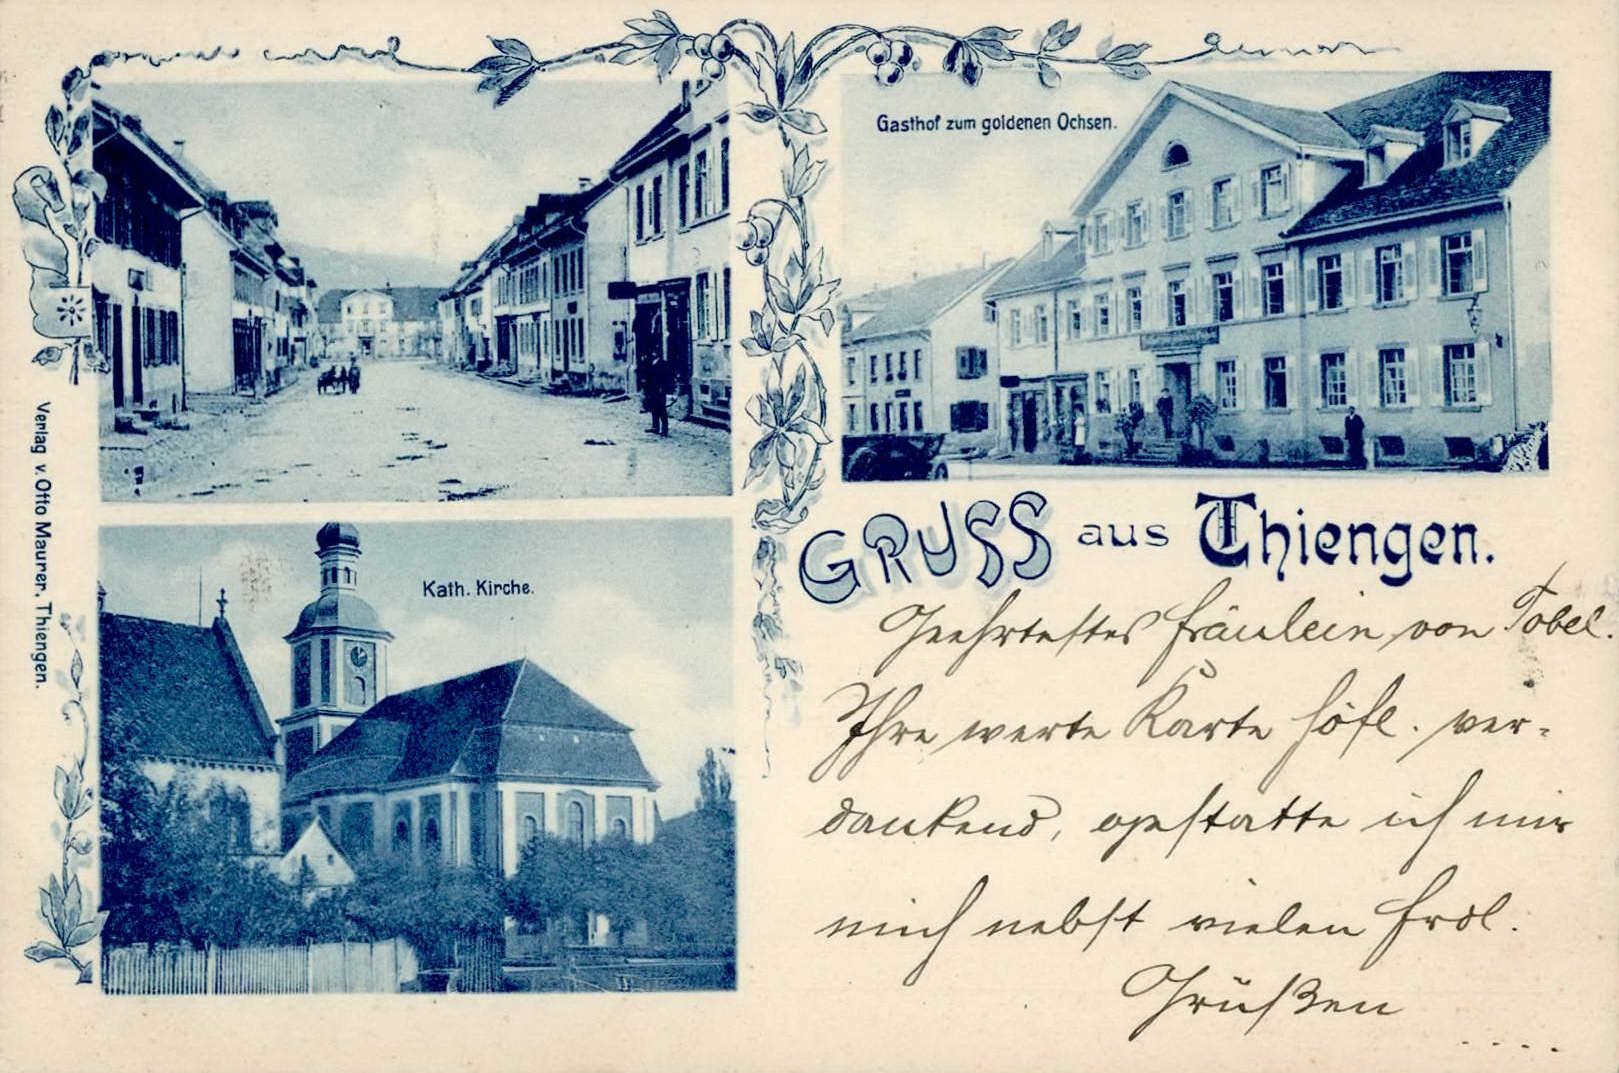 Gasthof zum goldenen Ochsen.
Kath. Kirche.
Verlag v. Otto Maurer, Thiengen.
GRUSS aus Thiengen.
Geehrtestes Fräulein von Tobel.
Ihre werte Karte höfl. ver-
dankend, gestatte ich mir
mich nebst vielen frdl.
Grüßen
....